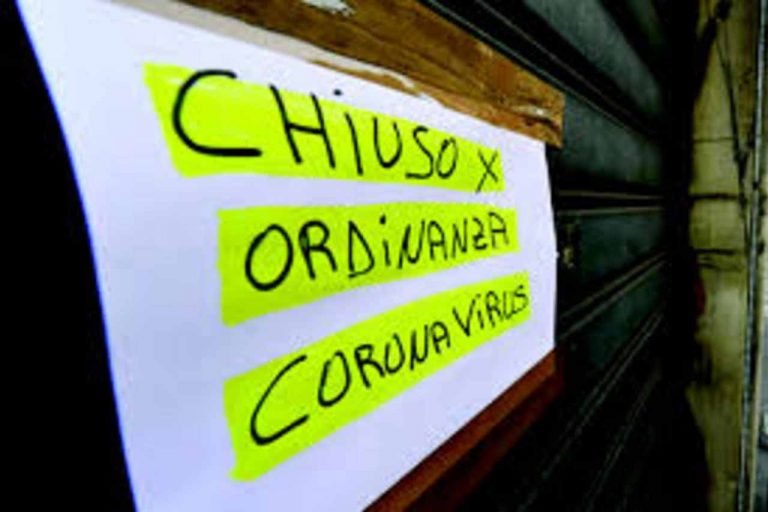 CHiUSO X
ORDiNANZA
CORONAViRUS